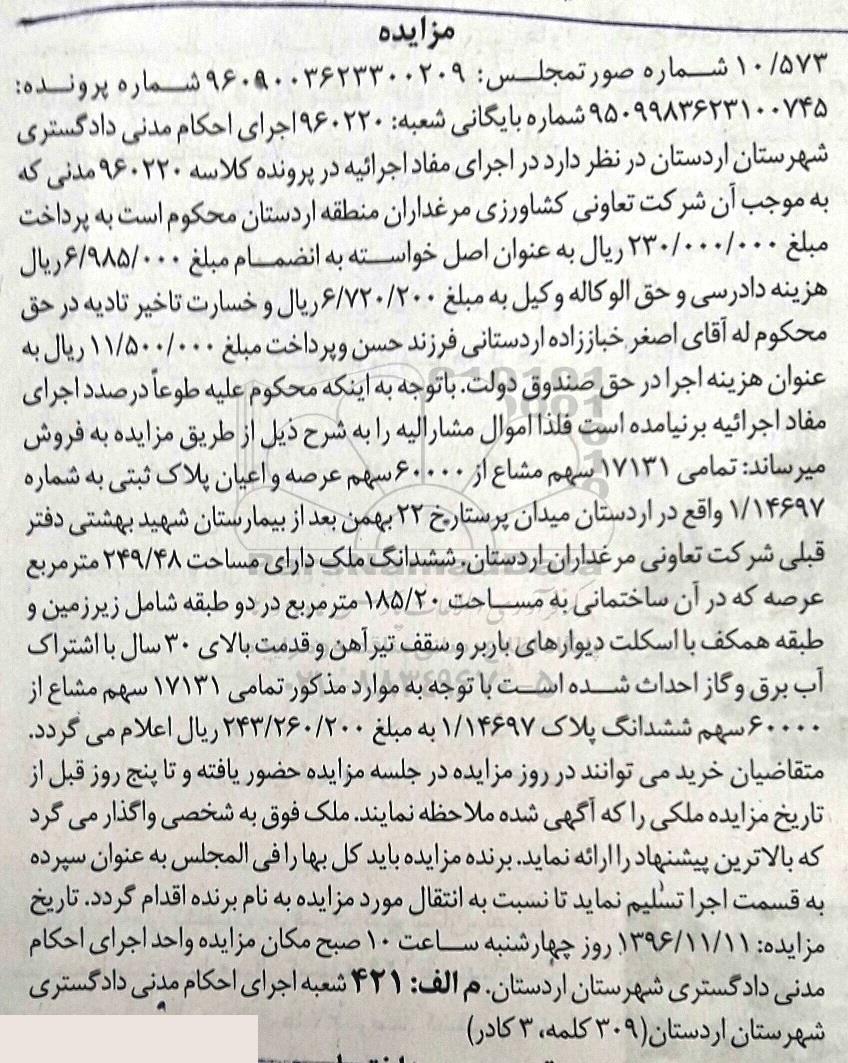 مزایده
۱۰/۵۷۳ شماره صورتمجلس: ۹۶۰۹۰۰۳۶۲۳۳۰۰۲۰۹ شماره پرونده:
۹۵۰۹۹۸۳۶۲۳۱۰۰۷۴۵ شماره بایگانی شعبه: ۹۶۰۲۲۰ اجرای احکام مدنی دادگستری
شهرستان اردستان در نظر دارد در اجرای مفاد اجرائیه در پرونده کلاسه ۹۶۰۲۲۰ مدنی که
به موجب آن شرکت تعاونی کشاورزی مرغداران منطقه اردستان محکوم است به پرداخت
مبلغ ۲۳۰/۰۰۰/۰۰۰ ریال به عنوان اصل خواسته به انضمام مبلغ ۶/۹۸۵/۰۰۰ ریال
هزینه دادرسی و حق الوکاله وکیل به مبلغ ۶/۷۲۰/۲۰۰ ریال و خسارت تاخیر تادیه در حق
محکوم له آقای اصغر خباززاده اردستانی فرزند حسن وپرداخت مبلغ ۱۱/۵۰۰/۰۰۰ ریال به
عنوان هزینه اجرا در حق صندوق دولت. باتوجه به اینکه محکوم علیه طوعاً درصدد اجرای
مفاد اجرائیه برنیامده است فلذا اموال مشارالیه را به شرح ذیل از طریق مزایده به فروش
میرساند: تمامی ۱۷۱۳۱ سهم مشاع از ۶۰۰۰۰ سهم عرصه و اعیان پلاک ثبتی به شماره
۱/۱۴۶۹۷ واقع در اردستان میدان پرستارخ ۲۲ بهمن بعد از بیمارستان شهید بهشتی دفتر
قبلی شرکت تعاونی مرغداران اردستان. ششدانگ ملک دارای مساحت ۲۴۹/۴۸ مترمربع
عرصه که در آن ساختمانی به مساحت ۱۸۵/۲۰ مترمربع در دو طبقه شامل زیرزمین و
طبقه همکف با اسکلت دیوارهای باربر و سقف تیرآهن و قدمت بالای ۳۰ سال با اشتراک
آب برق و گاز احداث شده است با توجه به موارد مذکور تمامی ۱۷۱۳۱ سهم مشاع از
۶۰۰۰۰ سهم ششدانگ پلاک ۱/۱۴۶۹۷ به مبلغ ۲۴۳/۲۶۰/۲۰۰ ریال اعلام می گردد.
متقاضیان خرید می توانند در روز مزایده در جلسه مزایده حضور یافته و تا پنج روز قبل از
تاریخ مزایده ملکی را که آگهی شده ملاحظه نمایند. ملک فوق به شخصی واگذار می گرد
که بالاترین پیشنهاد را ارائه نماید. برنده مزایده باید کل بها را فی المجلس به عنوان سپرده
به قسمت اجرا تسلیم نماید تا نسبت به انتقال مورد مزایده به نام برنده اقدام گردد. تاریخ
مزایده: ۱۳۹۶/۱۱/۱۱ روز چهارشنبه ساعت ۱۰ صبح مکان مزایده واحد اجرای احکام
مدنی دادگستری شهرستان اردستان. م الف: ۴۲۱ شعبه اجرای احکام مدنی دادگستری
شهرستان اردستان(۳۰۹ کلمه، ۳ کادر)